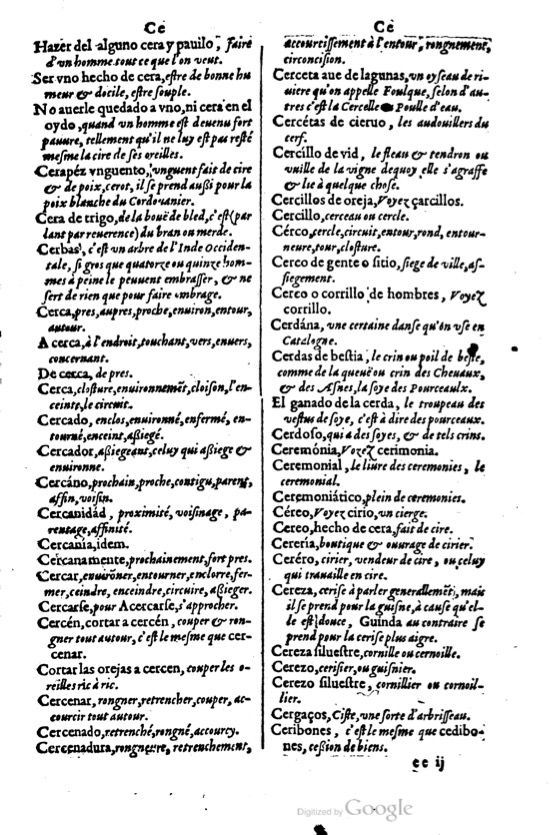 Ce
Hazer del alguno cera y pauilo, faire
d'un homme tout ce que l'on veut.
Ser vno hecho de cera, estre de bonne hu
meur & docile, estre souple.
No auerle quedado a vno, ni cera en el
oydo, quand un homme est deuenu fort
pauure, tellement qu'il ne luy est pas resté
mesme la cire de ses oreilles.
Cerapéz vnguento, unguent fait de cire
& de poix, cerot, il se prend aussi pour la
poix blanche du Cordouanier.
Cera de trigo, de la bouë de bled, c'est (par
lant par reuerence) du bran ou merde.
Cerbas, c'est un arbre de l'Inde Occiden-
tale, si gros que quatorze ou quinze hom-
mes à peine le peuuent embrasser, & ne
sert de rien que pour faire ombrage.
Cerca, pres, aupres, proche, enuiron, entour,
autour.
A cerca, à l'endroit, touchant, vers, enuers,
concernant.
De cerca, de pres.
Cerca, closture, enuironnemēt, cloison, l'en-
ceinte, le circuit.
Cercado, enclos, enuironné, enfermé, en-
tourné, enceint, assiegé.
Cercador, assiegeant, celuy qui assiege &
enuironne.
Cercáno, prochain, proche, contigu, parent,
affin, voisin.
Cercanidád, proximité, voisinage, pa-
rentage, affinité.
Cercanía, idem.
Cercanamente, prochainement, fort pres.
Cercar, enuirōner, entourner, enclorre, fer-
mer, ceindre, enceindre, circuire, assieger.
Cercarse, pour Acercarse, s'approcher.
Cercén, cortar a cercén, couper & ron-
gner tout autour, c'est le mesme que cer-
cenar.
Cortar las orejas a cercen, couper les o-
reilles ric à ric.
Cercenar, rongner, retrencher, couper, ac-
courcir tout autour.
Cercenado, retrenché, rongné, accourcy.
Cercenadura, rongneure, retrenchement,
Ce
accourtissement à l'entour, rongnement,
circoncision.
Cerceta aue de lagunas, un oyseau de ri-
uiere qu'on appelle Foulque, selon d'au-
tres c'est la Cercelle Poulle d'eau.
Cercétas de cieruo, les andouillers du
cerf.
Cercíllo de vid, le fleau & tendron ou
vuille de la vigne dequoy elle s'agraffe
& lie à quelque chose.
Cercillos de oreja, Voyez çarcillos.
Cercillo, cerceau ou cercle.
Cérco, cercle, circuit, entour, rond, entour-
neure, tour, closture.
Cerco de gente o sitio, siege de ville, as-
siegement.
Cerco o corrillo de hombres, Voyez
corrillo.
Cerdána, une certaine danse qu'on vse en
Catalogne.
Cerdas de bestia, le crin ou poil de beste,
comme de la queuë ou crin des Cheuaux,
& des Asnes, la soye des Pourceaulx.
El ganado de la cerda, le troupeau des
vestus de soye, c'est à dire des pourceaux.
Cerdoso, qui a des soyes, & de tels crins.
Ceremónia, Voyez cerimonia.
Ceremonial, le liure des ceremonies, le
ceremonial.
Ceremoniático, plein de ceremonies.
Céreo, Voyez cirio, un cierge.
Cereo, hecho de cera, fait de cire.
Cerería, boutique & ouurage de cirier.
Ceréro, cirier, vendeur de cire, ou celuy
qui trauaille en cire.
Cereza, cerise à parler generallemēt, mais
il se prend pour la guisne, à cause qu'el-
le est douce, Guinda au contraire se
prend pour la cerise plus aigre.
Cereza siluestre, cornille ou cernoille.
Cerezo, cerisier, ou guisnier.
Cerezo siluestre, cornillier ou cornoil-
lier.
Cergaços, Ciste, une sorte d'arbrisseau.
Ceribones, c'est le mesme que cedibo-
nes, cession de biens.
ee ij
Digitized by Google